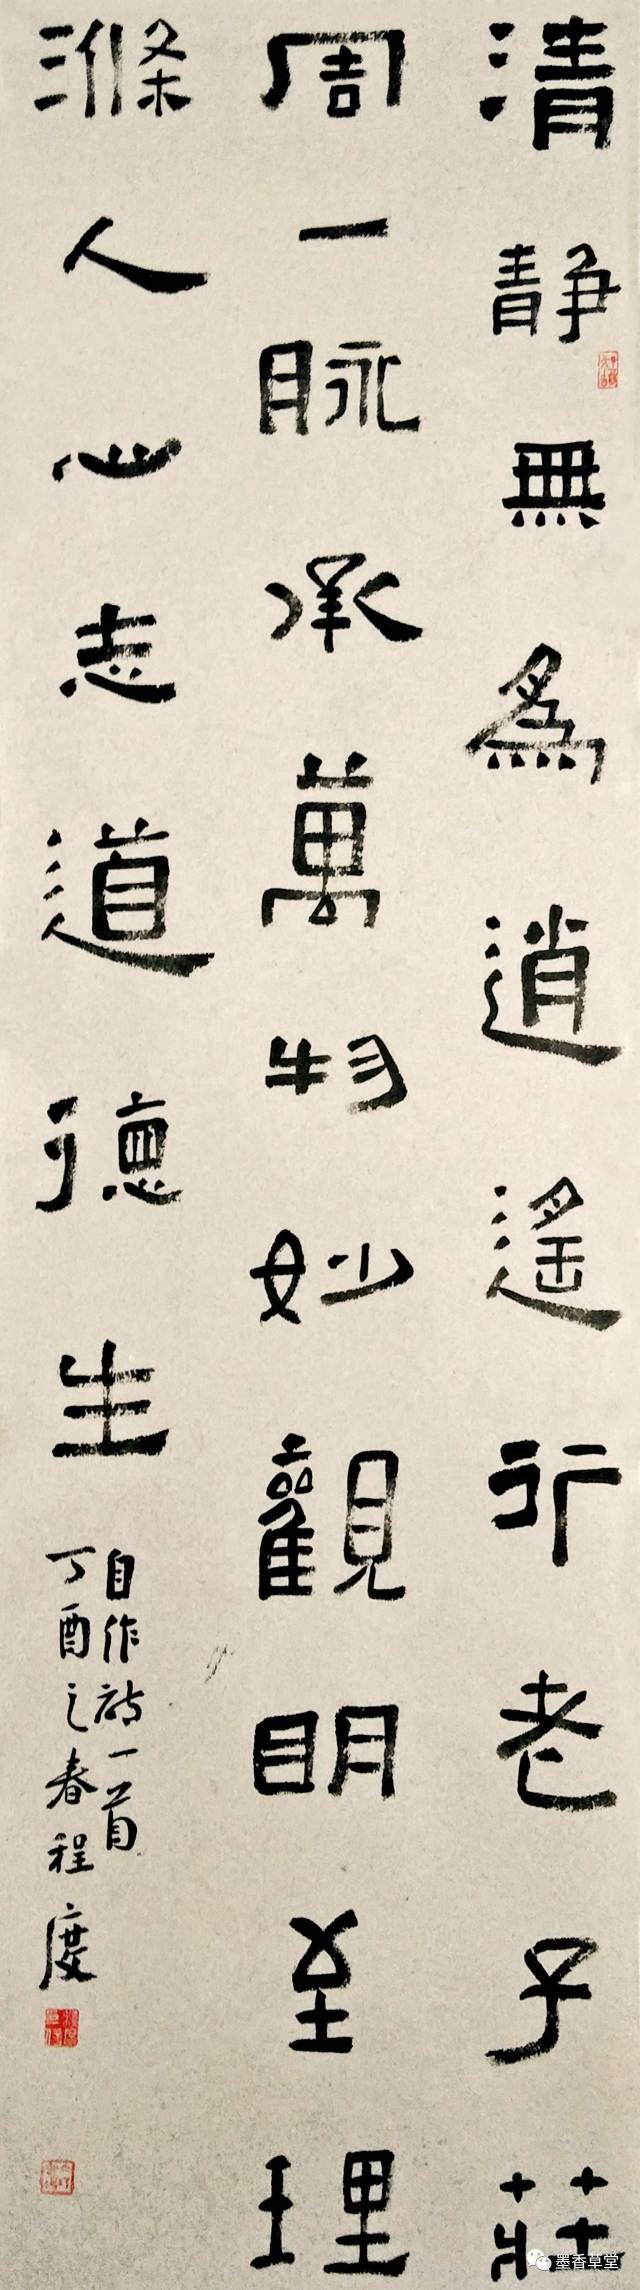 清静無為逍遙行老子莊
周一脉承萬物妙觀明至理
滌人心志道德生
自作詩一首
丁酉之春程度
墨香草堂